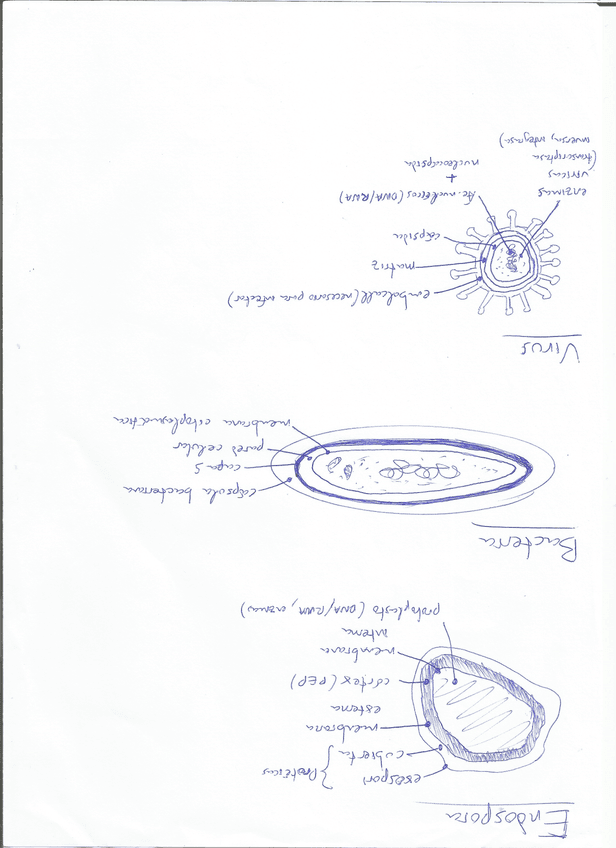 Endospora
exospori
cubierta } Proteicas
membrana
externa
córtex (PEP)
membrana
interna
protoplasto (DNA/RNA, enzimas)
Bacteria
cápsula bacteriana
capa S
pared celular
membrana citoplasmática
Virus
embolcall (necesario para infectar)
matriz
cápsida
Ac. nucleicos (DNA/RNA)
+
nucleocápsida
enzimas
víricas
(transcriptasa
inversa, integrasa)